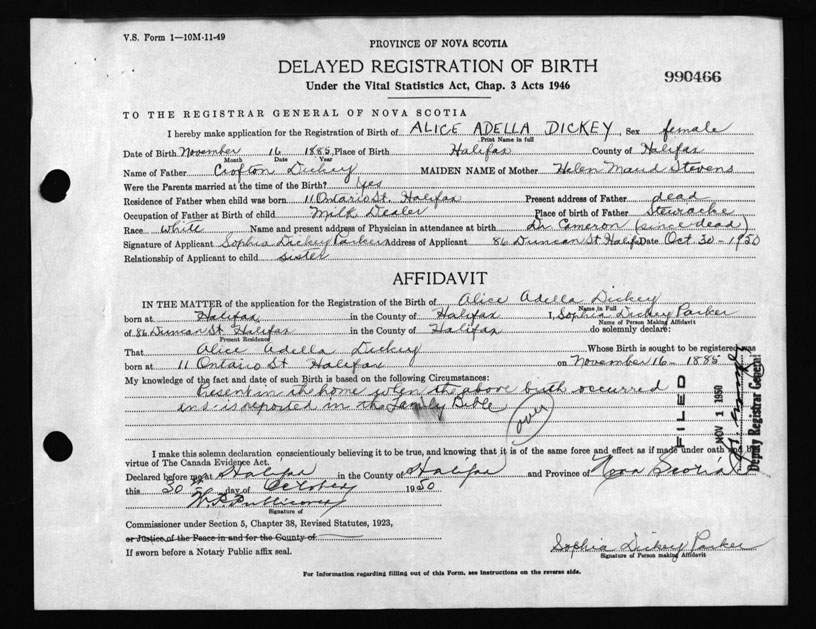 V.S. Form 1—10M-11-49
PROVINCE OF NOVA SCOTIA
DELAYED REGISTRATION OF BIRTH
990466
Under the Vital Statistics Act, Chap. 3 Acts 1946
TO THE REGISTRAR GENERAL OF NOVA SCOTIA
I hereby make application for the Registration of Birth of ALICE ADELLA DICKEY, Sex female
Print Name in full
Date of Birth November 16 1885, Place of Birth Halifax County of Halifax
Month Date Year
Name of Father Crofton Dickey MAIDEN NAME of Mother Helen Maud Stevens
Were the Parents married at the time of the Birth? Yes
Residence of Father when child was born 11 Ontario St. Halifax Present address of Father dead
Occupation of Father at Birth of child Milk Dealer Place of birth of Father Stewiacke
Race White Name and present address of Physician in attendance at birth Dr Cameron (since dead)
Signature of Applicant Sophia Dickey Parker Address of Applicant 86 Duncan St Halifax Date Oct 30-1950
Relationship of Applicant to child sister
AFFIDAVIT
IN THE MATTER of the application for the Registration of the Birth of Alice Adella Dickey
Name in Full
born at Halifax in the County of Halifax I, Sophia Dickey Parker
Name of Person Making Affidavit
of 86 Duncan St. Halifax in the County of Halifax do solemnly declare:
Present Residence
That Alice Adella Dickey Whose Birth is sought to be registered was
born at 11 Ontario St Halifax on November 16- 1885
My knowledge of the fact and date of such Birth is based on the following Circumstances:
Present in the home when the above birth occurred
is reported in the Family Bible
over
FILED
NOV 1 1950
Deputy Registrar General
I make this solemn declaration conscientiously believing it to be true, and knowing that it is of the same force and effect as if made under oath and by
virtue of The Canada Evidence Act.
Declared before me at Halifax in the County of Halifax and Province of Nova Scotia
this 30th day of October 1950
Signature of
Commissioner under Section 5, Chapter 38, Revised Statutes, 1923,
or Justice of the Peace in and for the County of
If sworn before a Notary Public affix seal.
Sophia Dickey Parker
Signature of Person making Affidavit
For Information regarding filling out of this Form, see instructions on the reverse side.